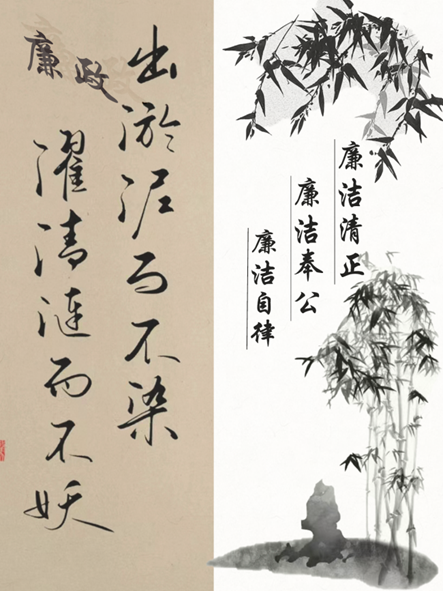 廉政
出淤泥而不染
濯清涟而不妖
廉洁清正
廉洁奉公
廉洁自律